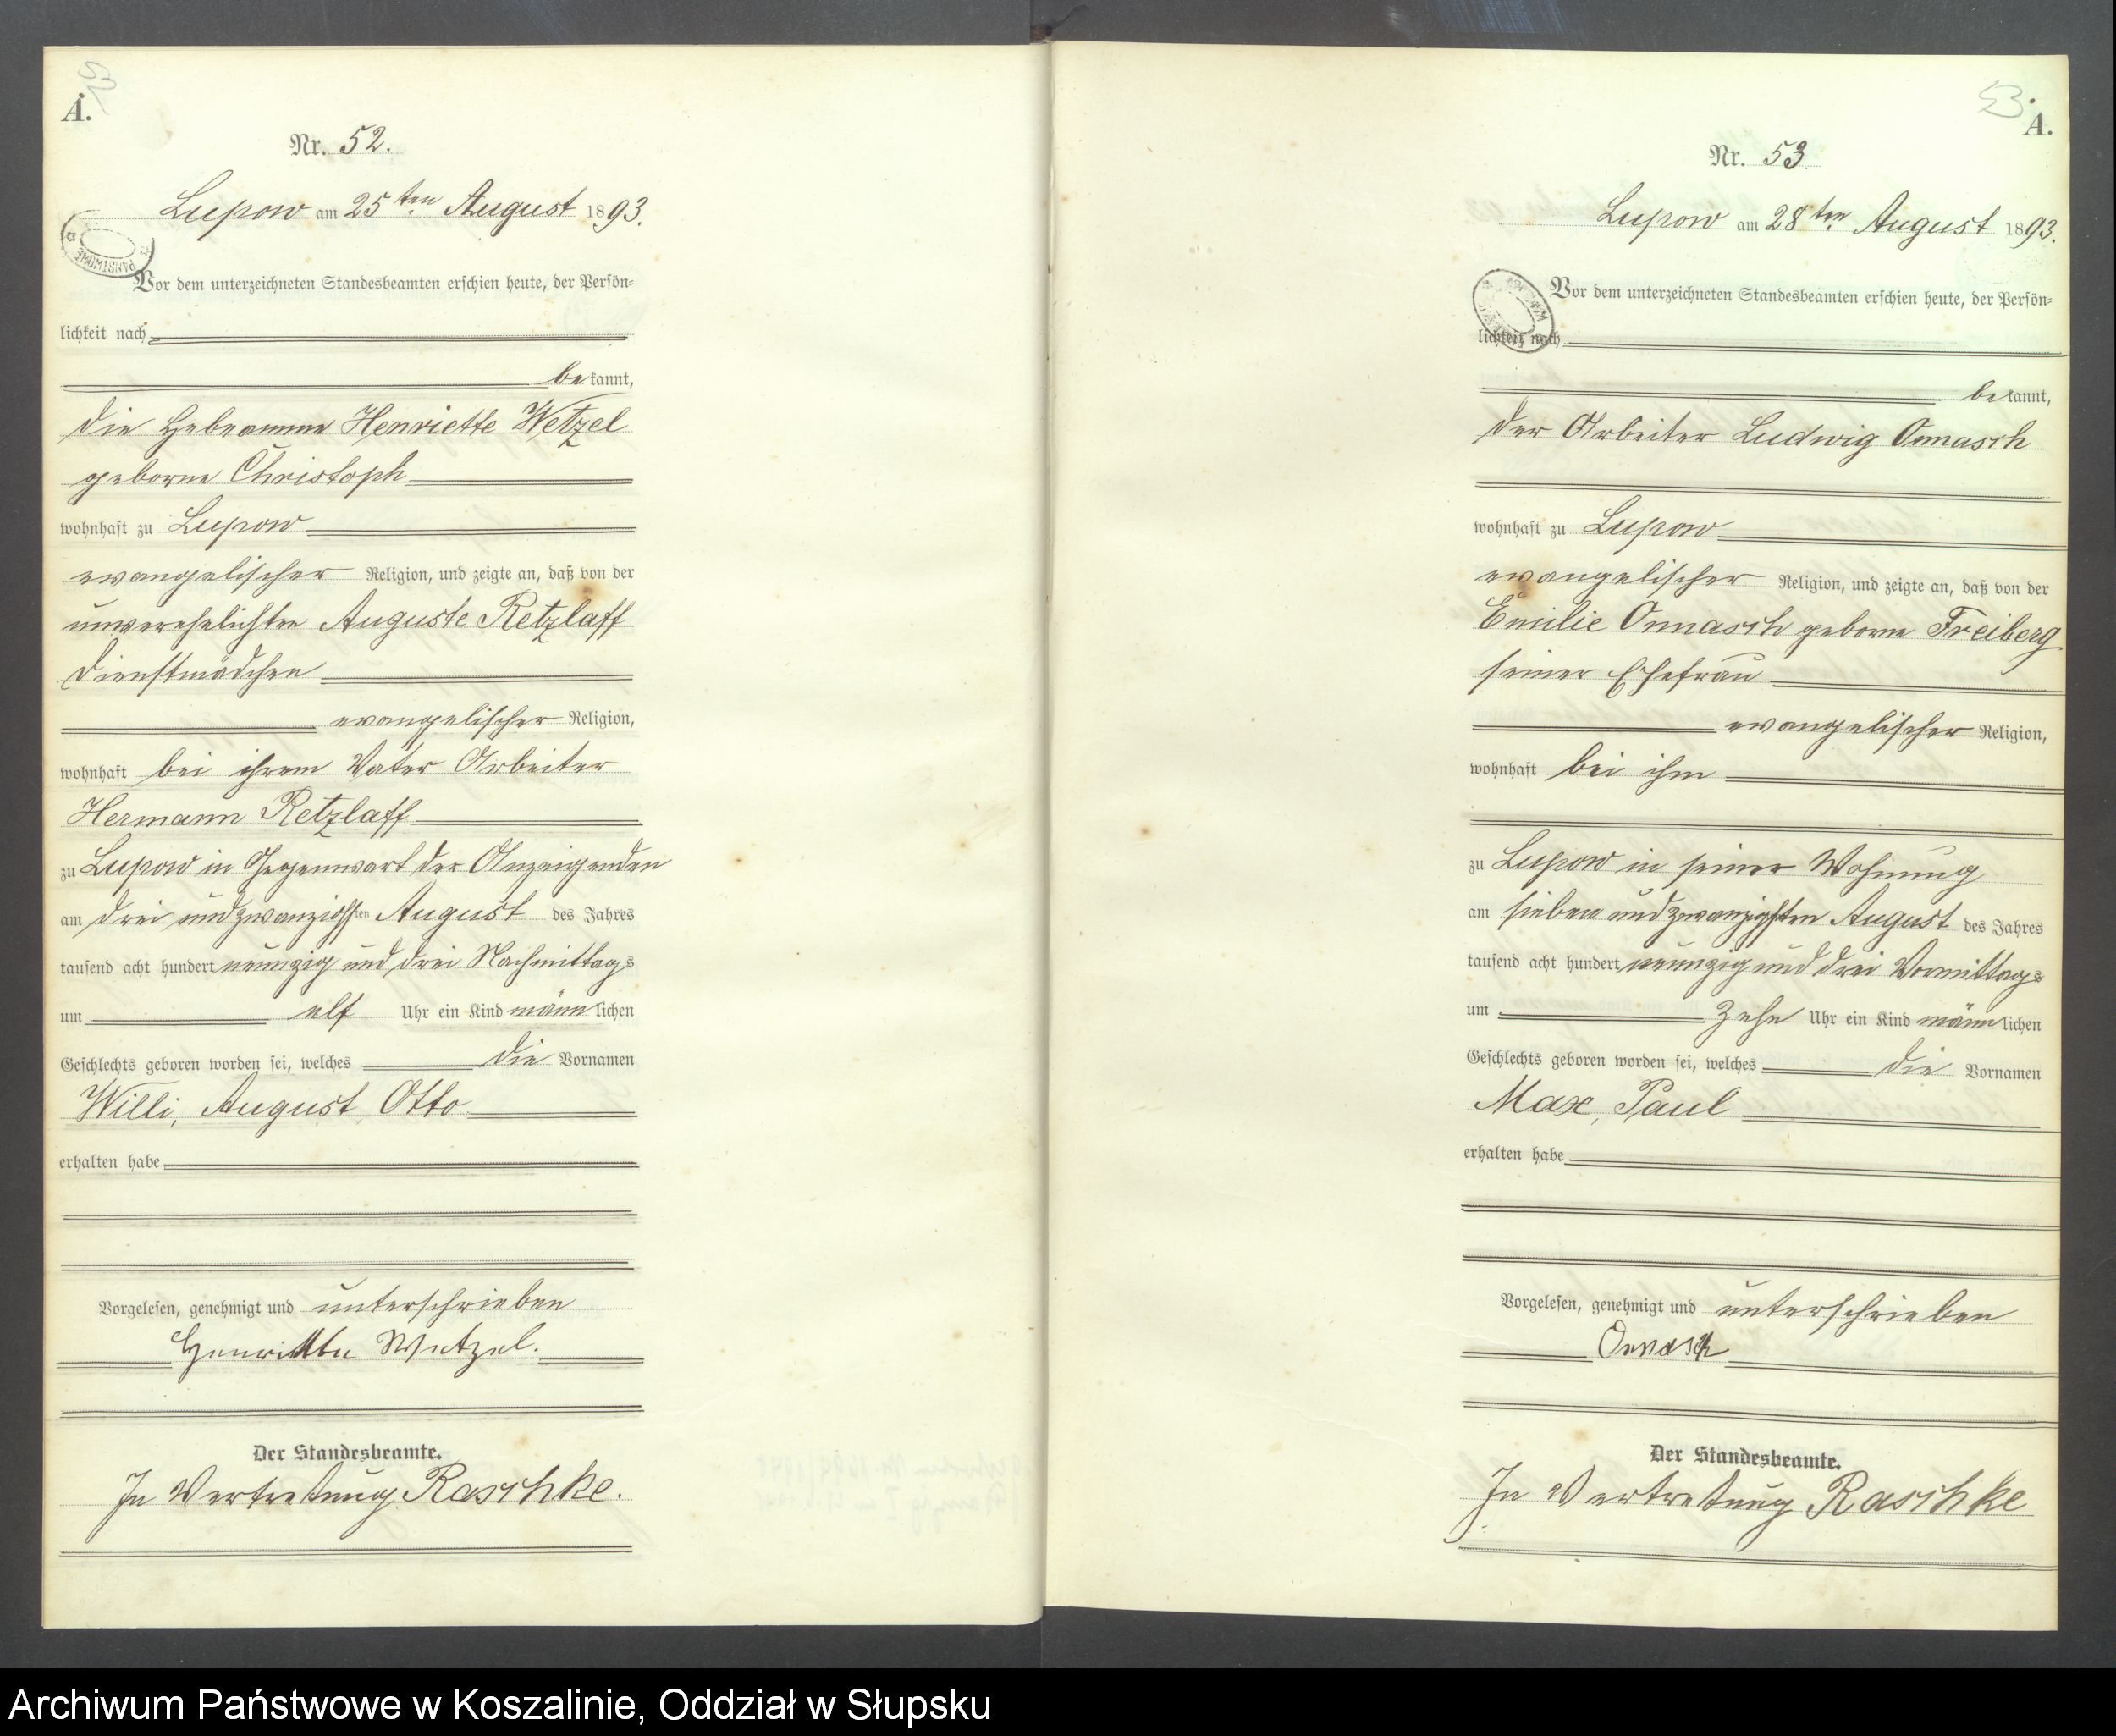 52
A.
Nr. 52.
Lupow am 25ten August 1893.
Vor dem unterzeichneten Standesbeamten erschien heute, der Persön-
lichkeit nach
bekannt,
die Hebeamme Henriette Wetzel
geborne Christoph
wohnhaft zu Lupow
evangelischer Religion, und zeigte an, daß von der
unverehelichten Auguste Retzlaff
Dienstmädchen
evangelischer Religion,
wohnhaft bei ihrem Vater Arbeiter
Hermann Retzlaff
zu Lupow in Gegenwart der Anzeigenden
am drei und zwanzigsten August des Jahres
tausend acht hundert neunzig und drei Nachmittags
um elf Uhr ein Kind männlichen
Geschlechts geboren worden sei, welches die Vornamen
Willi, August Otto
erhalten habe
Vorgelesen, genehmigt und unterschrieben
Henriette Wetzel.
Der Standesbeamte.
In Vertretung Raschke.
53
A.
Nr. 53
Lupow am 28ten August 1893.
Vor dem unterzeichneten Standesbeamten erschien heute, der Persön-
lichkeit nach
bekannt,
der Arbeiter Ludwig Onnasch
wohnhaft zu Lupow
evangelischer Religion, und zeigte an, daß von der
Emilie Onnasch geborne Freiberg
seiner Ehefrau
evangelischer Religion,
wohnhaft bei ihm
zu Lupow in seiner Wohnung
am sieben und zwanzigsten August des Jahres
tausend acht hundert neunzig und drei Vormittags
um zehn Uhr ein Kind männlichen
Geschlechts geboren worden sei, welches die Vornamen
Max, Paul
erhalten habe
Vorgelesen, genehmigt und unterschrieben
Onnasch
Der Standesbeamte.
In Vertretung Raschke
Archiwum Państwowe w Koszalinie, Oddział w Słupsku